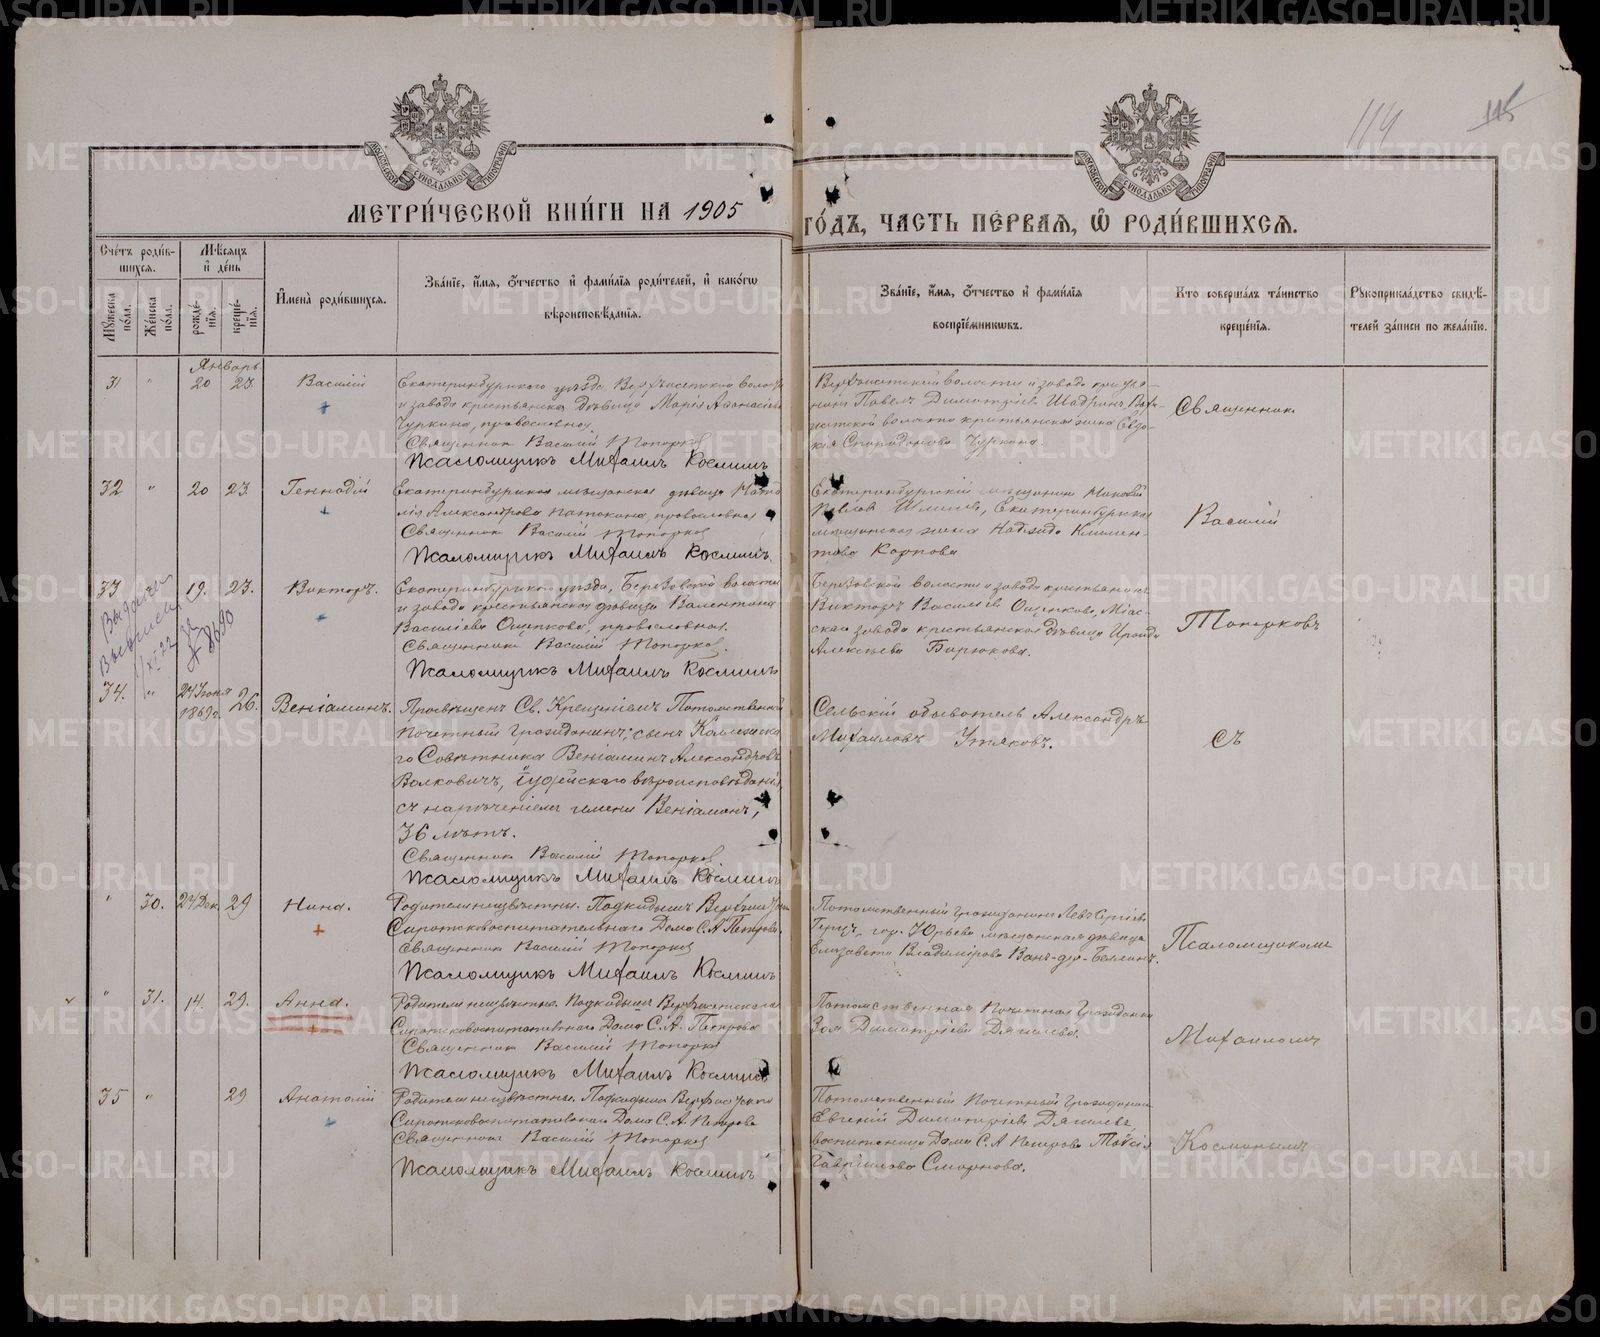 114
115
МОСКОВСКОЙ СУНОДАЛЬНОЙ ТИПОГРАФІИ
МОСКОВСКОЙ СУНОДАЛЬНОЙ ТИПОГРАФІИ
МЕТРИ́ЧЕСКОЙ КНИ́ГИ НА 1905
ГО́ДЪ, ЧАСТЬ ПЕ́РВАЯ, Ѡ РОДИ́ВШИХСѦ.
Сче́тъ роди́в-
шихся.
Мꙋжеска по́ла.
Же́нска по́ла.
Мѣсяцъ
и҆ де́нь
рожде́-
нїя.
креще́-
нїя.
И҆мена̀ роди́вшихся.
Зва́нїе, и҆́мя, ѻ҆́тчество и҆ фами́лїя роди́телей, и҆ како́гѡ
вѣроисповѣ́данїя.
Зва́нїе, и҆́мя, ѻ҆́тчество и҆ фами́лїя
воспрїе́мникѡвъ.
Кто соверша́лъ та́инство
креще́нїя.
Рꙋкоприкла́дство свидѣ́-
телей за́писи по жела́нїю.
Январь
31 " 20 23 Василій
Екатеринбургскаго уѣзда, Верхъисетской волости
и завода крестьянская дѣвица Марія Аѳанасіева
Чуркина, православная.
Священникъ Василій Топорковъ
Псаломщикъ Михаилъ Косминъ
Верхъисетской волости и завода крестья-
нинъ Павелъ Димитріевъ Шадринъ, Верх-
исетской волости крестьянская жена Евдо-
кія Спиридонова Чуркина.
Священник
32 " 20 23. Геннадій
Екатеринбургская мѣщанская дѣвица Ната-
лія Александрова Патокина, православная
Священникъ Василій Топорковъ
Псаломщикъ Михаилъ Косминъ.
Екатеринбургскій мѣщанинъ Николай
Павловъ Шмелевъ, Екатеринбургская
мѣщанская жена Надежда Климен-
това Карпова
Василій
33 19. 23. Викторъ.
Выдана
Выписка
1/XI-22 за
№ 8690
Екатеринбургскаго уѣзда, Березовской волости
и завода крестьянская дѣвица Валентина
Василіева Ощепкова, православная.
Священникъ Василій Топорковъ.
Псаломщикъ Михаилъ Косминъ
Березовской волости и завода крестьянинъ
Викторъ Василіевъ Ощепковъ, Міас-
скаго завода крестьянская дѣвица Ираида
Алексѣева Бирюкова.
Топорковъ
34. " 24 Іюня 1869 г. 26. Веніаминъ.
Просвѣщенъ Св. Крещеніемъ Потомственный
почетный гражданинъ, сынъ Коллежска-
го Совѣтника Веніаминъ Александровъ
Волковичъ, іудейскаго вѣроисповѣданія,
съ нареченіемъ имени Веніаминъ,
36 лѣтъ.
Священникъ Василій Топорковъ
Псаломщикъ Михаилъ Косминъ
Сельскій обыватель Александръ
Михаиловъ Утяковъ.
Съ
" 30. 24 Дек. 29 Нина.
Родители неизвѣстны. Подкидышъ Верхъисетскаго
Сиротсковоспитательнаго Дома С. А. Петрова.
Священникъ Василій Топорковъ
Псаломщикъ Михаилъ Косминъ
Потомственный гражданинъ Левъ Сергіевъ
Герцъ, гор. Юрьева мѣщанская дѣвица
Елизавета Владимірова Ванъ-дер-Беллинъ.
Псаломщикомъ
" 31. 14. 29. Анна.
Родители неизвѣстны. Подкидышъ Верхъисетскаго
Сиротсковоспитательнаго Дома С. А. Петрова
Священникъ Василій Топорковъ
Псаломщикъ Михаилъ Косминъ
Потомственная Почетная Гражданка
Зоя Димитріева Дягилева.
Михаиломъ
35 " 29 Анатолій
Родители неизвѣстны. Подкидышъ Верхъисетскаго
Сиротсковоспитательнаго Дома С. А. Петрова
Священникъ Василій Топорковъ
Псаломщикъ Михаилъ Косминъ
Потомственный Почетный Гражданинъ
Евгеній Димитріевъ Дягилевъ
воспитанница Дома С. А. Петрова Таисія
Гавріилова Смирнова.
Косминымъ
METRIKI.GASO-URAL.RU